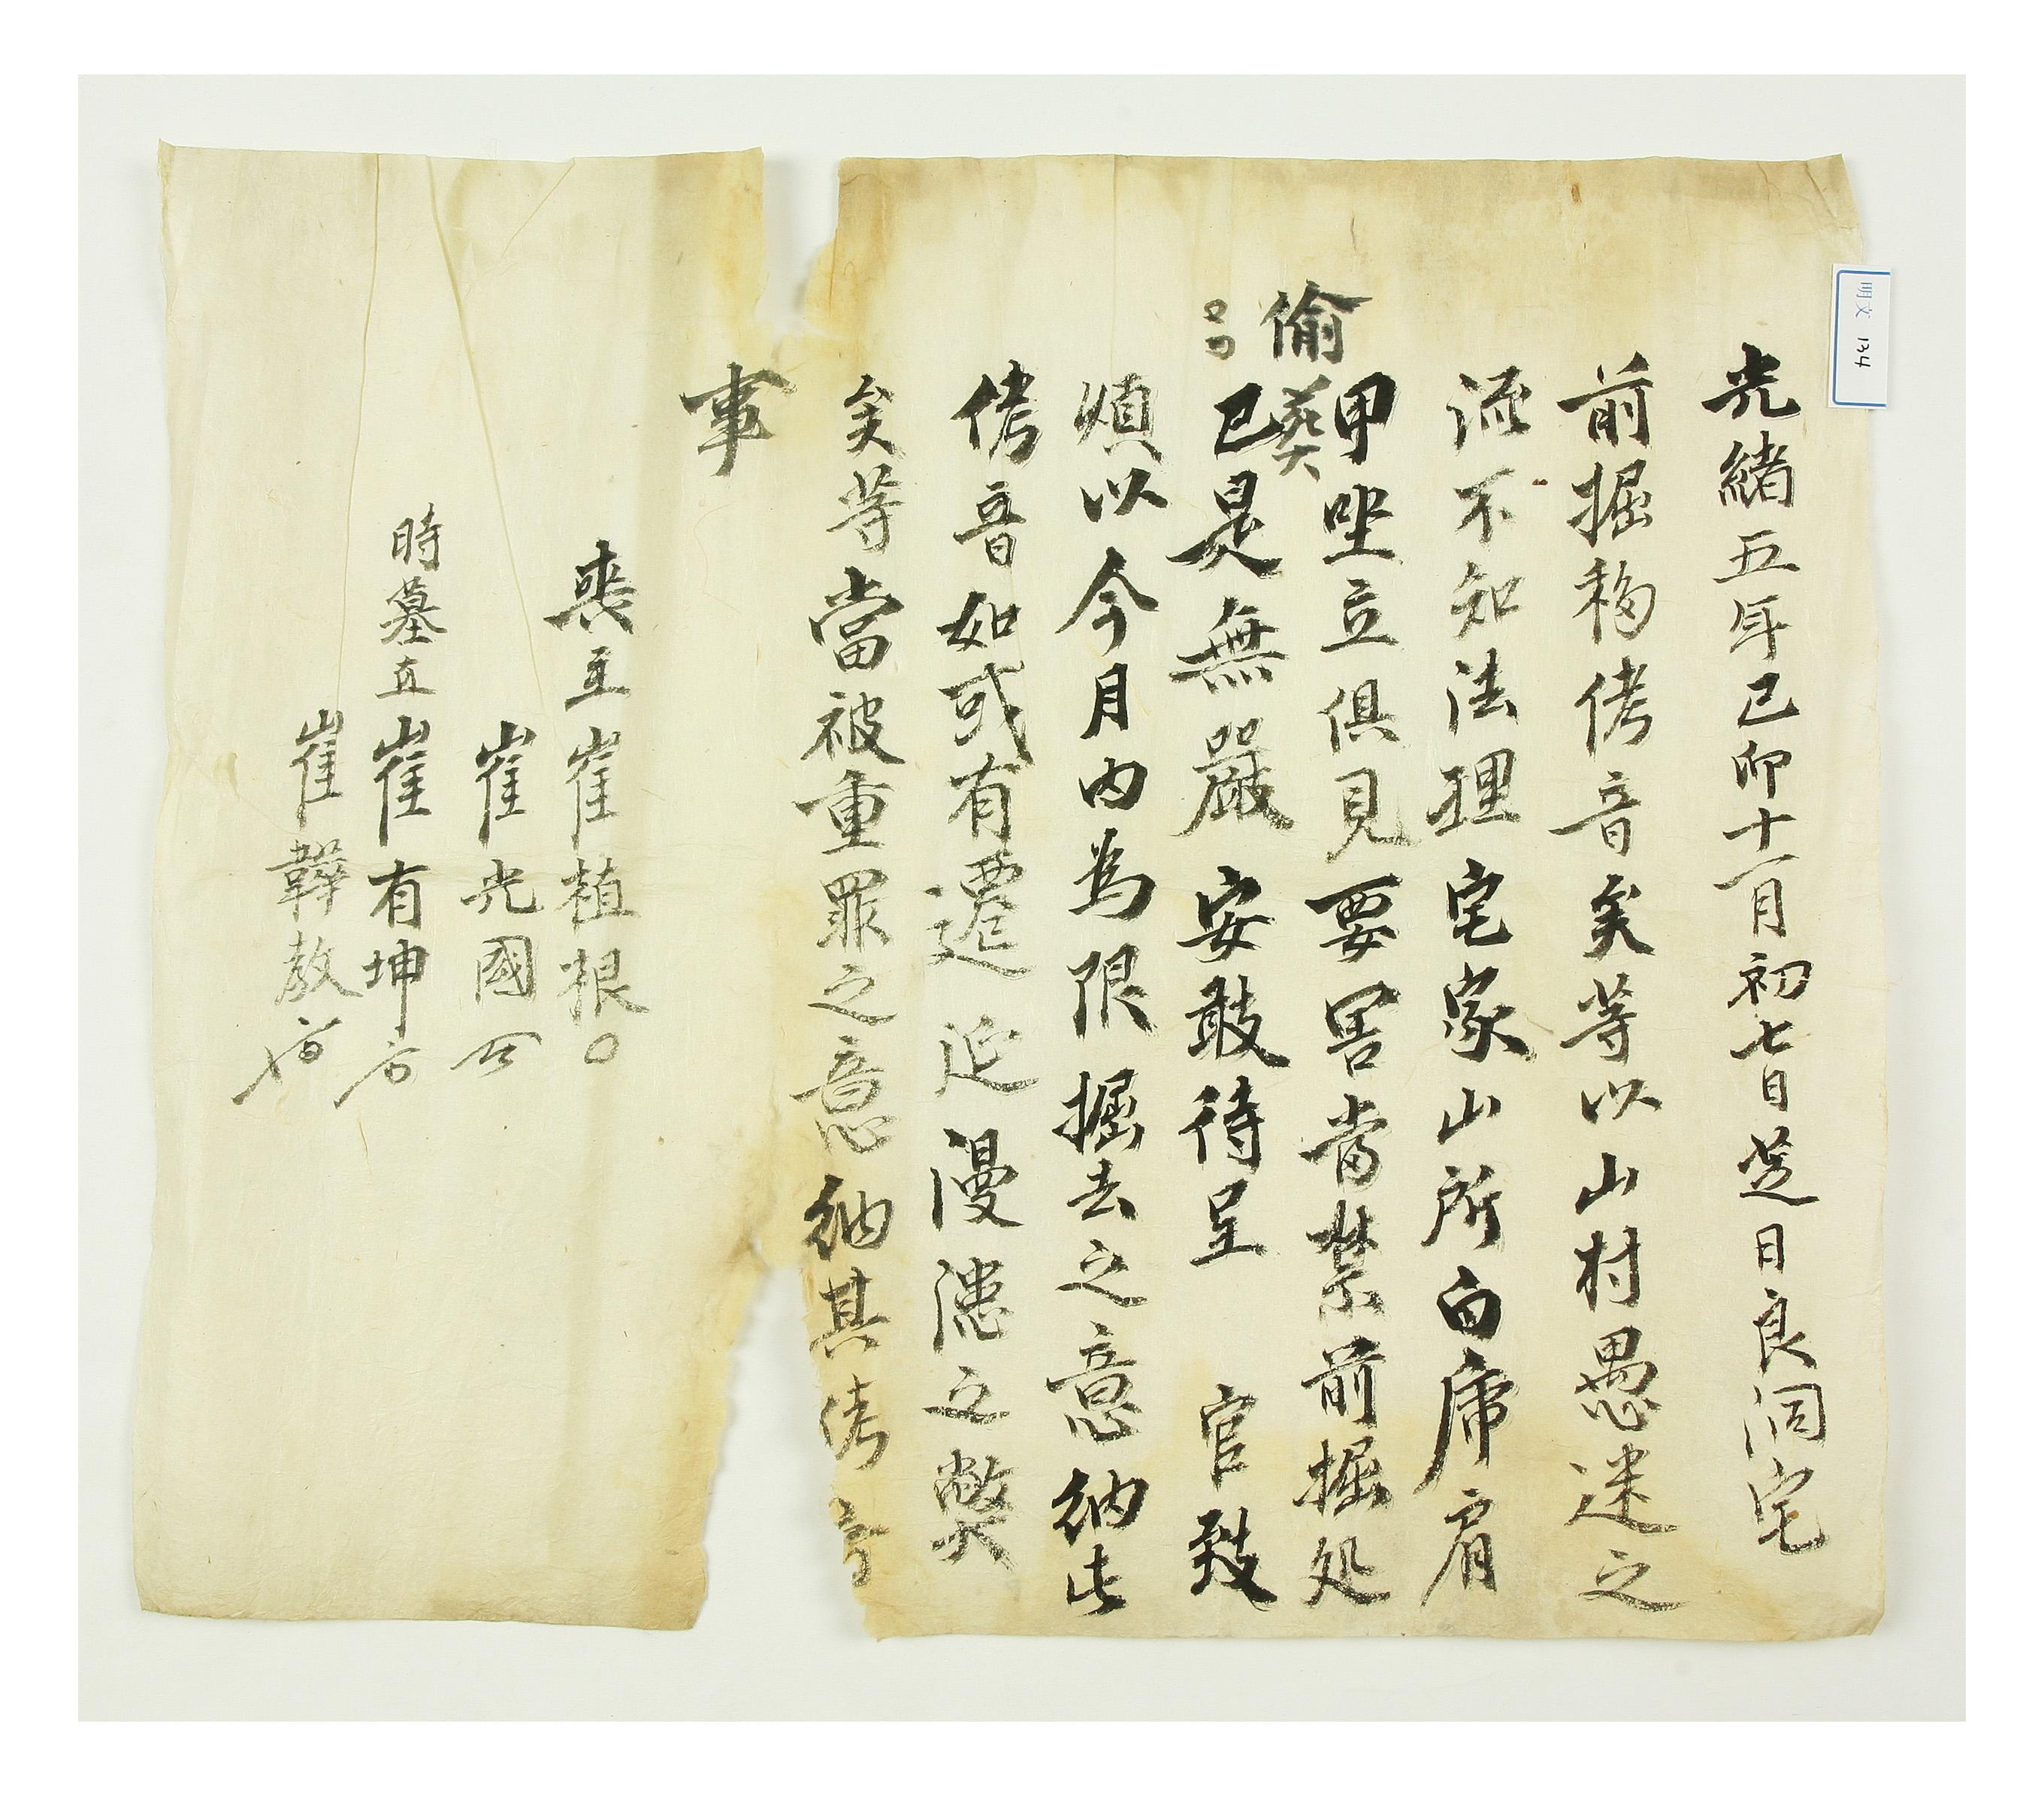 明文 134
光緖五年己卯十一月初七日芝日良洞宅
前掘移侤音矣等以山村愚迷之
流不知法理宅家山所白席肩
甲坐立俱見要害當禁前掘処
偷葬
已是無嚴安敢待呈 官致
煩以今月內為限掘去之意納此
侤音如或有遷延漫漶之獘
矣等當被重罪之意納其侤音
事
喪主崔植根
崔光國
時墓直崔有坤
崔韡敎